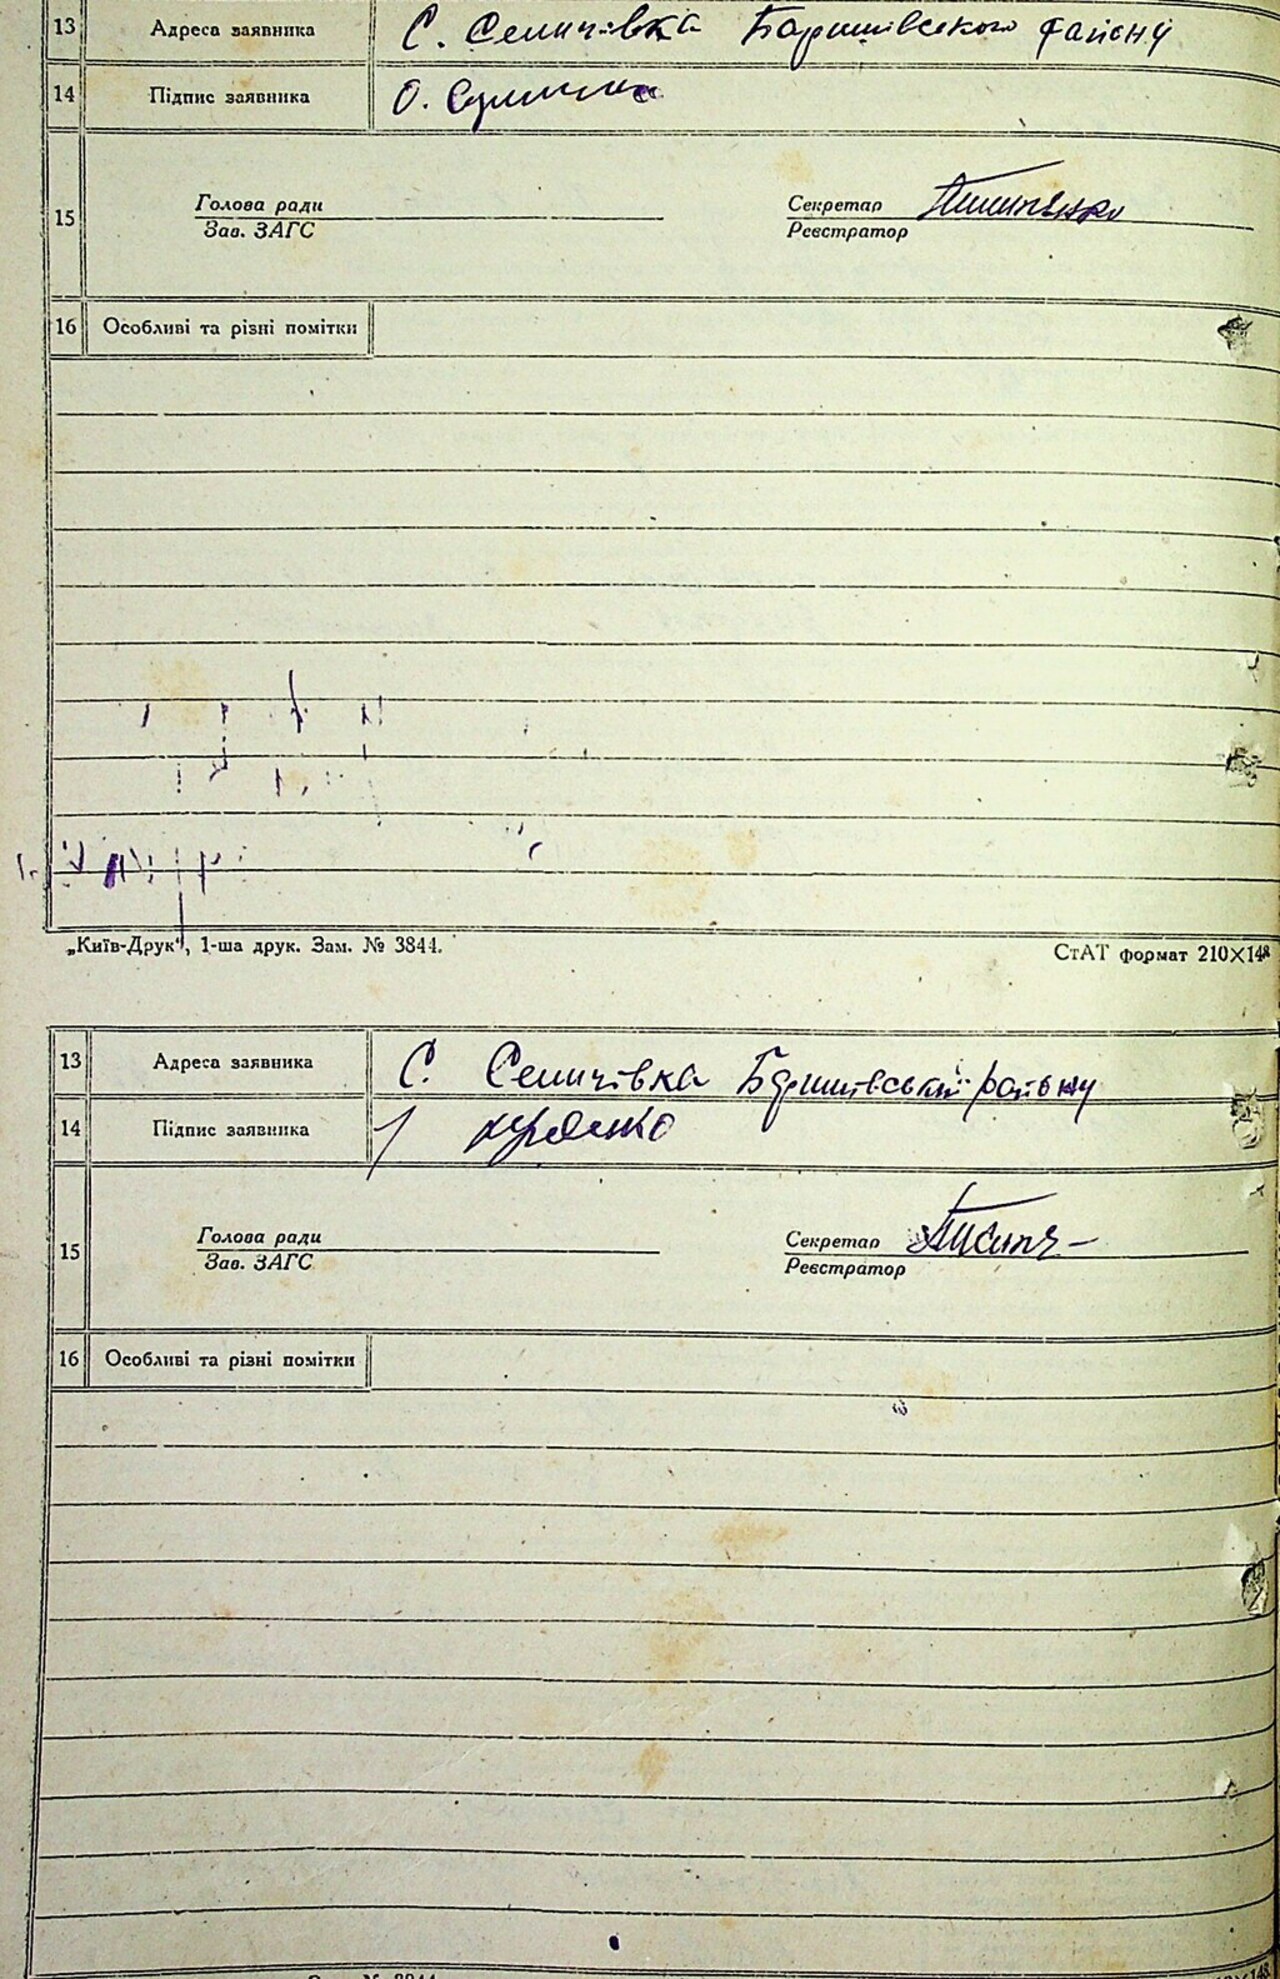 13 Адреса заявника С. Селичівка Баришівського району
14 Підпис заявника О.
15 Голова ради Секретар
Зав. ЗАГС Реєстратор
16 Особливі та різні помітки
„Київ-Друк“, 1-ша друк. Зам. № 3844. СтАТ формат 210×148
13 Адреса заявника С. Селичівка Баришівський району
14 Підпис заявника
15 Голова ради Секретар
Зав. ЗАГС Реєстратор
16 Особливі та різні помітки